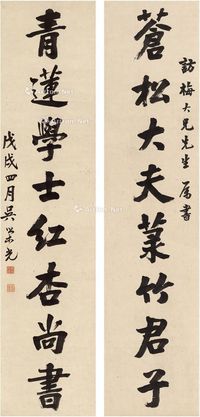 訪梅大兄先生屬書
蒼松大夫菉竹君子
青蓮學士紅杏尚書
戊戌四月吳榮光